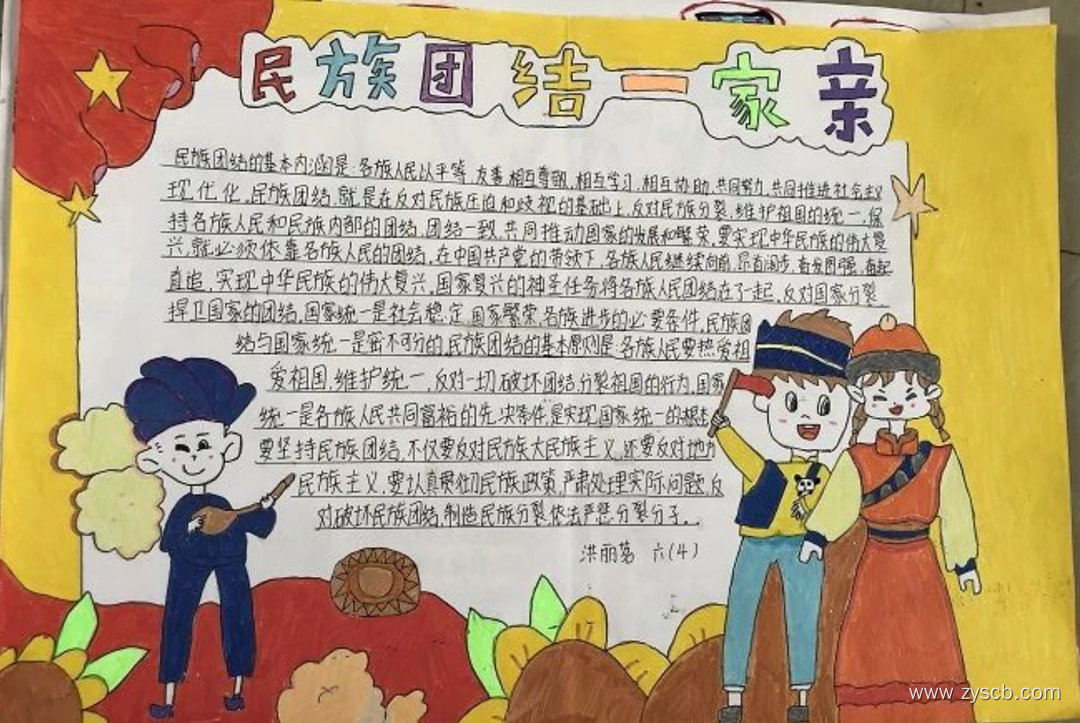 民族团结一家亲
民族团结的基本内涵是:各族人民以平等、友善、相互尊敬、相互学习、相互协助、共同努力、共同推进社会主义
现代化。民族团结,就是在反对民族压迫和歧视的基础上,反对民族分裂,维护祖国的统一,保
持各族人民和民族内部的团结。团结一致,共同推动国家的发展和繁荣。要实现中华民族的伟大复
兴,就必须依靠各族人民的团结。在中国共产党的带领下,各族人民继续向前,昂首阔步,奋发图强,奋起
直追,实现中华民族的伟大复兴。国家复兴的神圣任务将各族人民团结在了一起,反对国家分裂,
捍卫国家的团结。国家统一是社会稳定、国家繁荣、各族进步的必要条件,民族团
结与国家统一是密不可分的。民族团结的基本原则是:各族人民要热爱祖
爱祖国,维护统一,反对一切破坏团结、分裂祖国的行为。国家
统一是各族人民共同富裕的先决条件,是实现国家统一的根本
要坚持民族团结,不仅要反对民族大民族主义,还要反对地方
民族主义,要认真贯彻民族政策,严肃处理实际问题,反
对破坏民族团结,制造民族分裂,依法严惩分裂分子。
洪丽茗 六(4)
www.zyscb.com